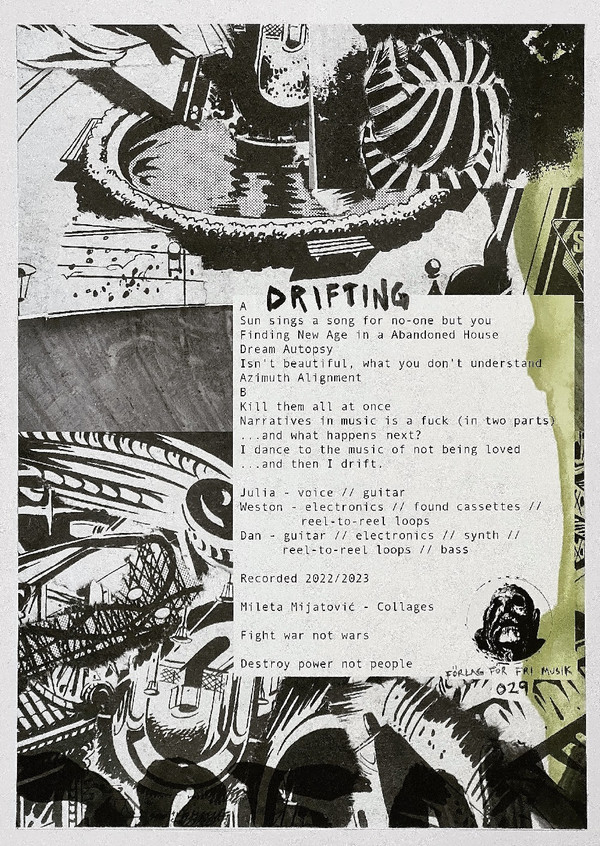 DRIFTING
A
Sun sings a song for no-one but you
Finding New Age in a Abandoned House
Dream Autopsy
Isn't beautiful, what you don't understand
Azimuth Alignment
B
Kill them all at once
Narratives in music is a fuck (in two parts)
...and what happens next?
I dance to the music of not being loved
...and then I drift.
Julia - voice // guitar
Weston - electronics // found cassettes //
reel-to-reel loops
Dan - guitar // electronics // synth //
reel-to-reel loops // bass
Recorded 2022/2023
Mileta Mijatović - Collages
Fight war not wars
Destroy power not people
FÖRLAG FÖR FRI MUSIK
029